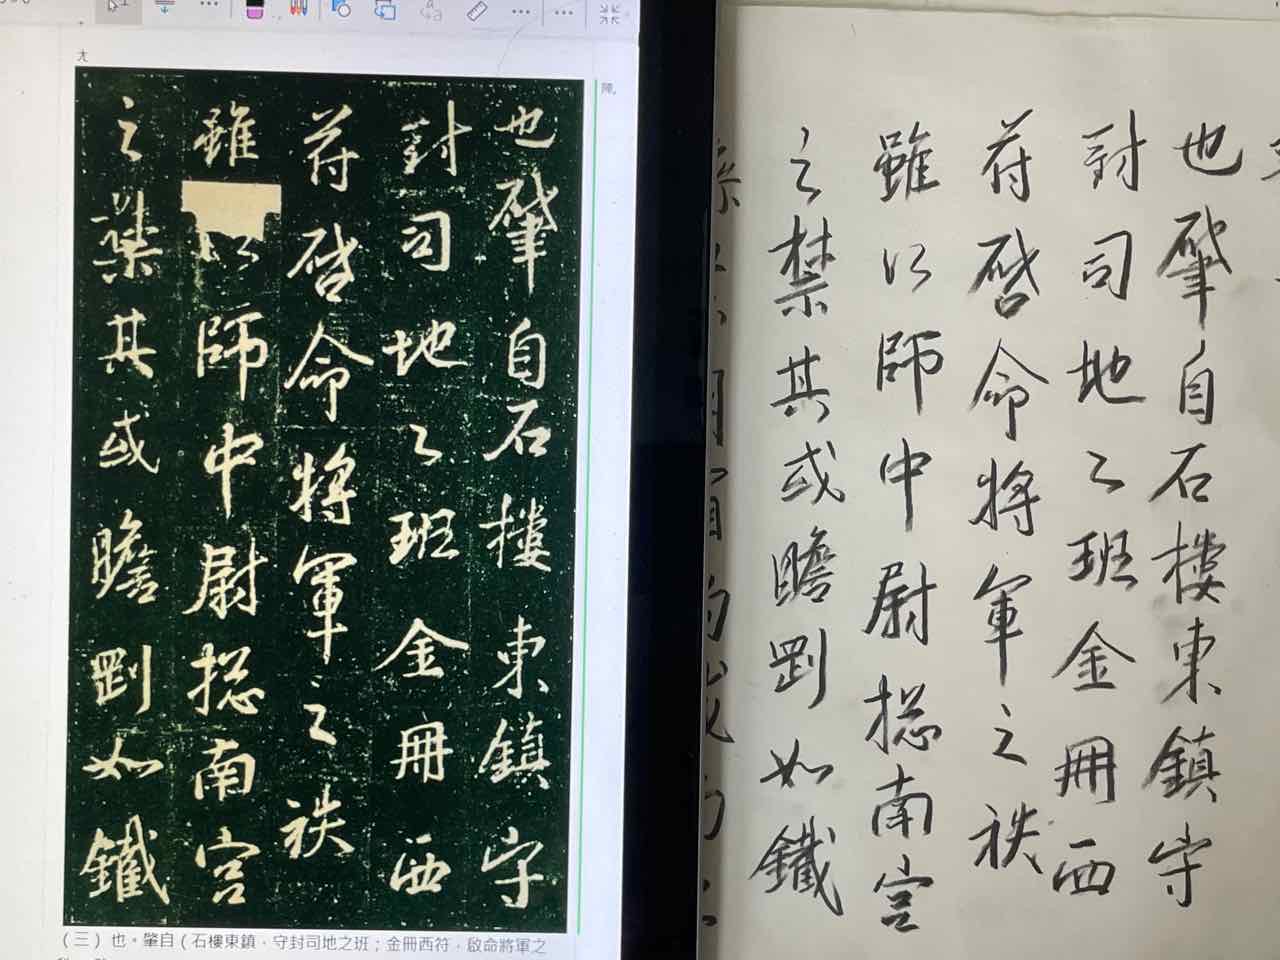 尢
陣
也肇自石樓東鎮守
封司地之班金冊西
符啓命將軍之袟
雖以師中尉捴南宮
之禁其或瞻劉如鐵
（三）也。肇自（石樓東鎮，守封司地之班；金冊西符，啟命將軍之
也肇自石樓東鎮守
封司地之班金冊西
符啓命將軍之袟
雖以師中尉捴南宮
之禁其或瞻劉如鐵